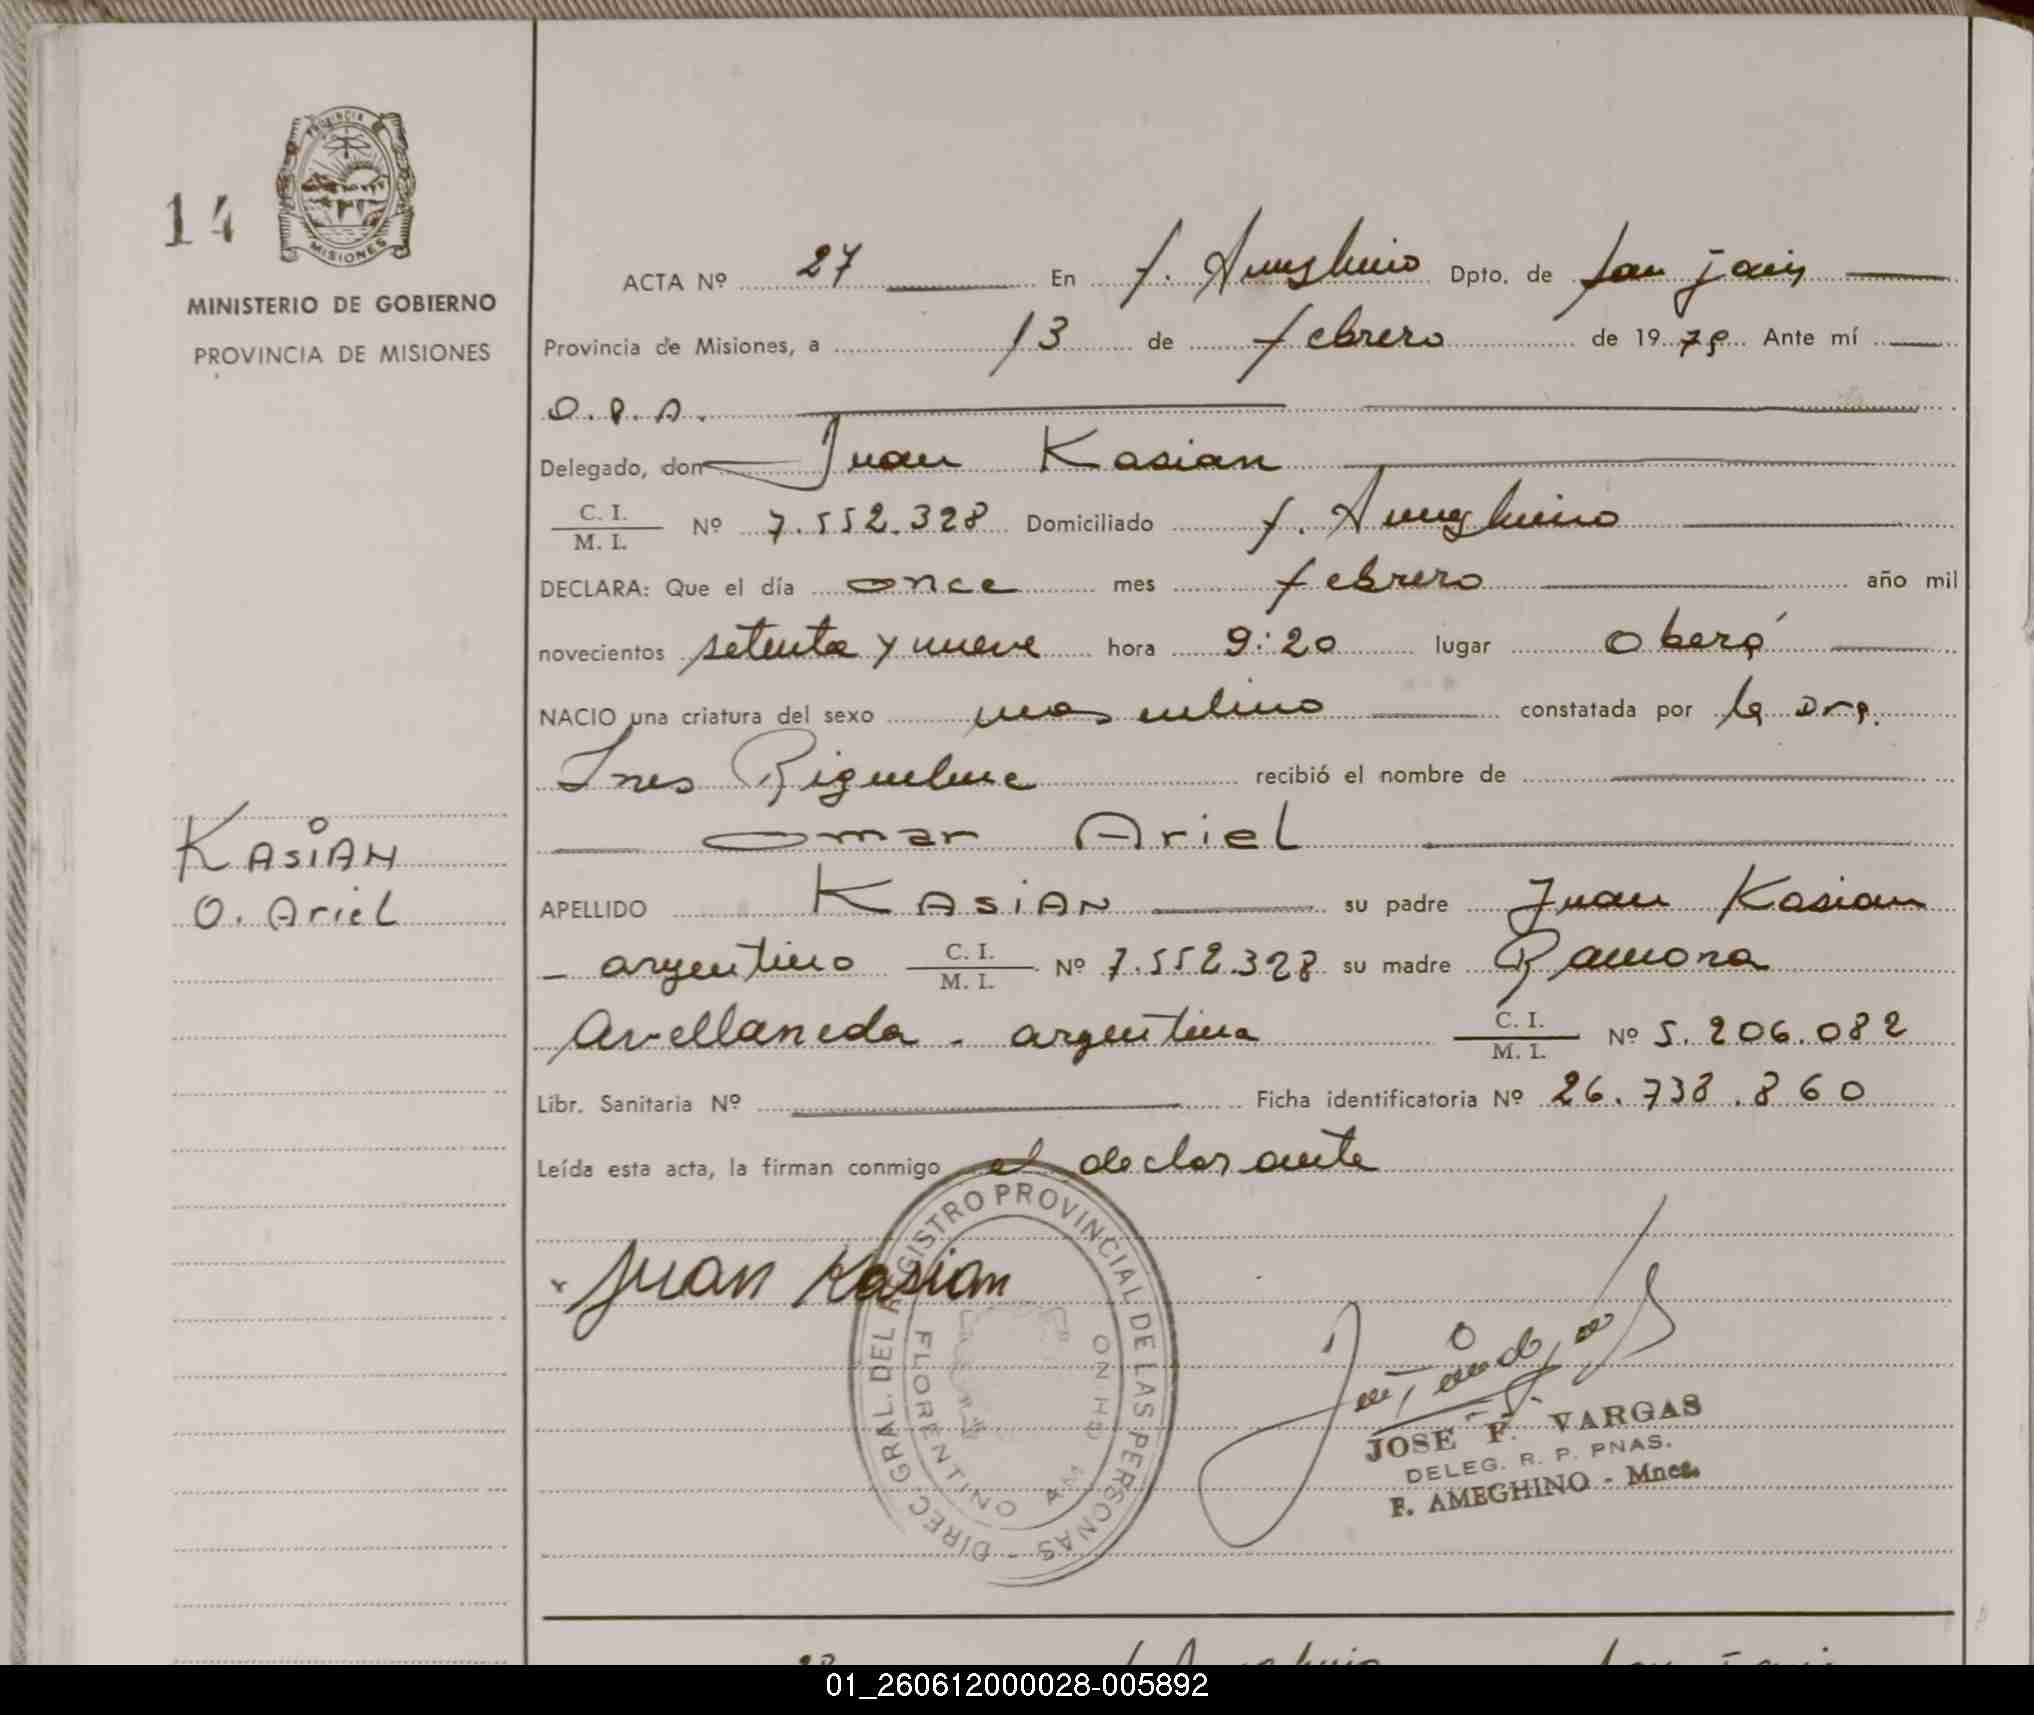 14
PROVINCIA
MISIONES
MINISTERIO DE GOBIERNO
PROVINCIA DE MISIONES
ACTA Nº 27 En F. Ameghino Dpto. de San Javier
Provincia de Misiones, a 13 de febrero de 1979 Ante mí
O.P.A.
Delegado, don Juan Kasian
C. I.
M. I. Nº 7.552.328 Domiciliado F. Ameghino
DECLARA: Que el día once mes febrero año mil
novecientos setenta y nueve hora 9:20 lugar Oberá
NACIO una criatura del sexo masculino constatada por la Dra.
Ines Riquelme recibió el nombre de
Omar Ariel
KASIAN
O. Ariel
APELLIDO KASIAN su padre Juan Kasian
argentino C. I.
M. I. Nº 7.552.328 su madre Ramona
Avellaneda - argentina C. I.
M. I. Nº 5.206.082
Libr. Sanitaria Nº Ficha identificatoria Nº 26.738.860
Leída esta acta, la firman conmigo el declarante
Juan Kasian
DIREC. GRAL. DEL REGISTRO PROVINCIAL DE LAS PERSONAS -
FLORENTINO AMEGHINO
JOSE F. VARGAS
DELEG. R. P. PNAS.
F. AMEGHINO - Mnes.
01_260612000028-005892